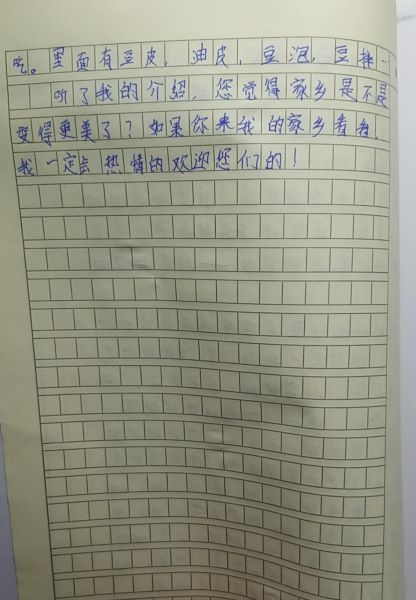 吃。里面有豆皮，油皮，豆泡，豆排…
听了我的介绍，您觉得家乡是不是
变得更美了？如果你来我的家乡看看，
我一定会热情的欢迎您们的！